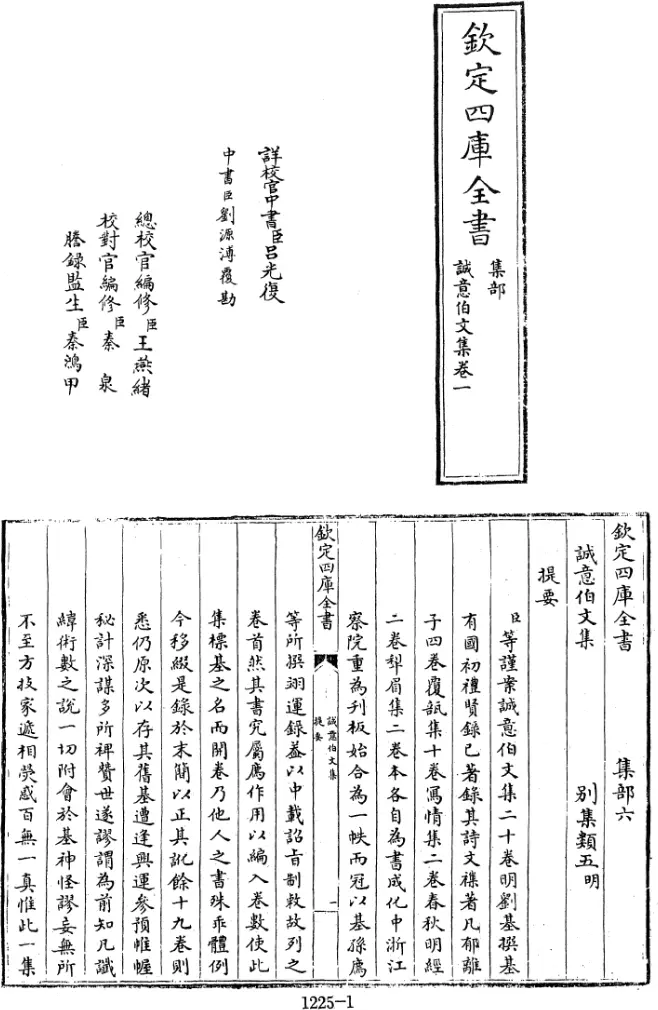 欽定四庫全書
集部
誠意伯文集卷一
詳校官中書臣呂光復
中書臣劉源溥覆勘
總校官編修臣王燕緒
校對官編修臣秦泉
謄錄監生臣秦鴻甲
欽定四庫全書 集部六
誠意伯文集 別集類五明
提要
臣等謹案誠意伯文集二十卷明劉基撰基
有國初禮賢錄已著錄其詩文襍著凡郁離
子四卷覆瓿集十卷寫情集二卷春秋明經
二卷犁眉集二卷本各自為書成化中浙江
察院重為刊板始合為一帙而冠以基孫廌
欽定四庫全書
誠意伯文集
提要
一
等所撰翊運錄葢以中載詔旨制敕故列之
卷首然其書究屬廌作用以編入卷數使此
集標基之名而開卷乃他人之書殊乖體例
今移綴是錄於末簡以正其訛餘十九卷則
悉仍原次以存其舊基遭逢興運參預帷幄
秘計深謀多所裨贊世遂謬謂為前知凡讖
緯術數之說一切附會於基神怪謬妄無所
不至方技家遞相熒惑百無一真惟此一集
1225-1